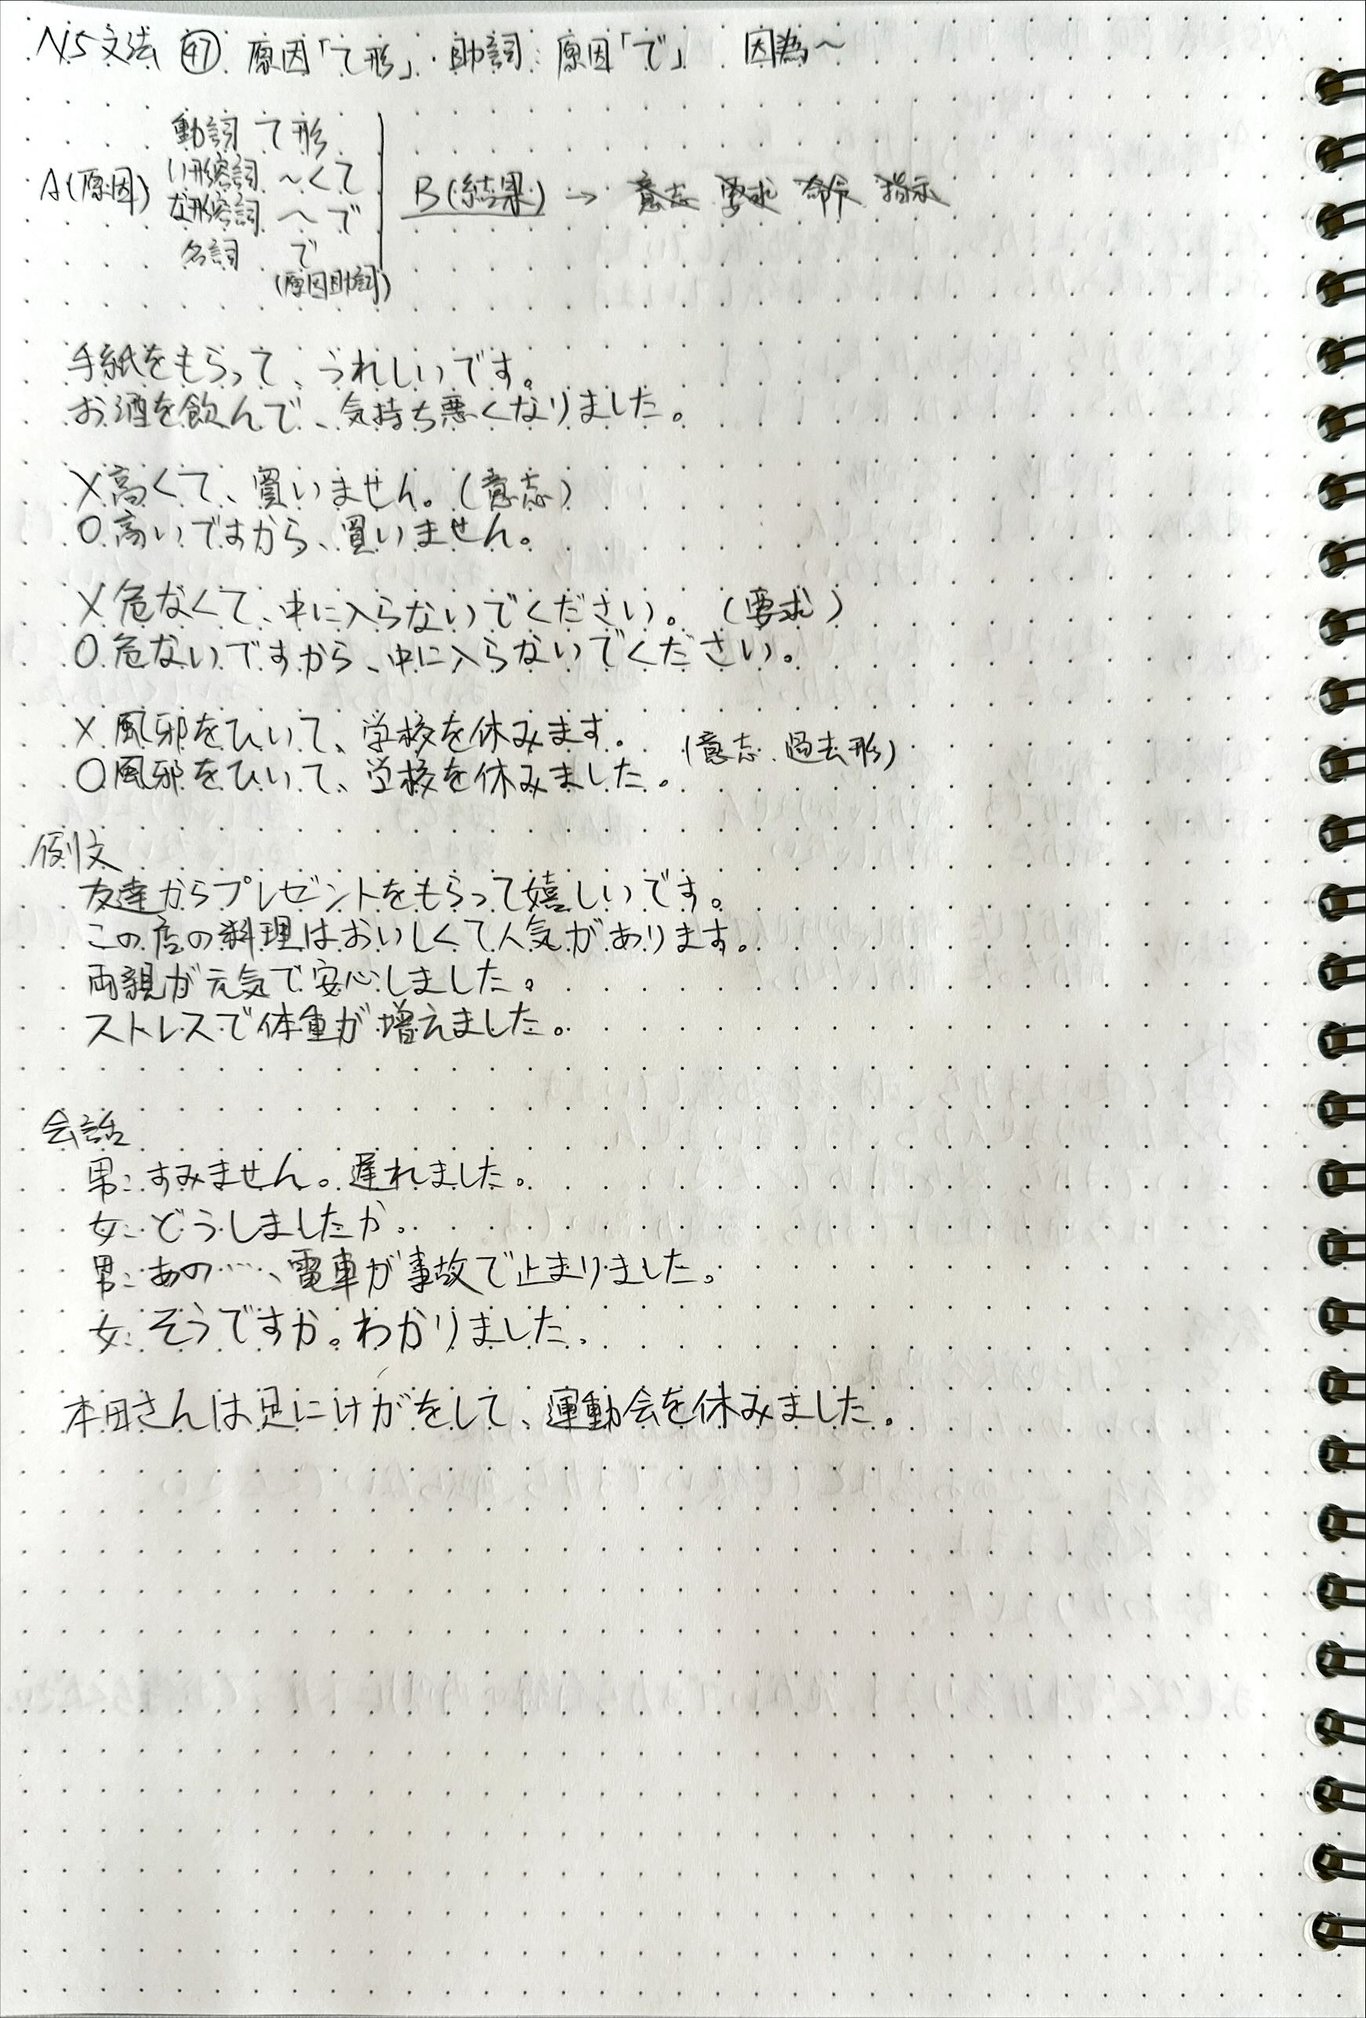 N5文法 ㊼ 原因「て形」・助詞:原因「で」 因為～
A(原因)
動詞 て形
い形容詞 ～くて
な形容詞 ～で
名詞 で
(原因助詞)
B(結果) → 意志 要求 命令 指示
手紙をもらって、うれしいです。
お酒を飲んで、気持ち悪くなりました。
X 高くて、買いません。(意志)
O 高いですから、買いません。
X 危なくて、中に入らないでください。(要求)
O 危ないですから、中に入らないでください。
X 風邪をひいて、学校を休みます。
(意志.過去形)
O 風邪をひいて、学校を休みました。
例文
友達からプレゼントをもらって嬉しいです。
この店の料理はおいしくて人気があります。
両親が元気で安心しました。
ストレスで体重が増えました。
会話
男:すみません。遅れました。
女:どうしましたか。
男:あの……、電車が事故で止まりました。
女:そうですか。わかりました。
本田さんは足にけがをして、運動会を休みました。